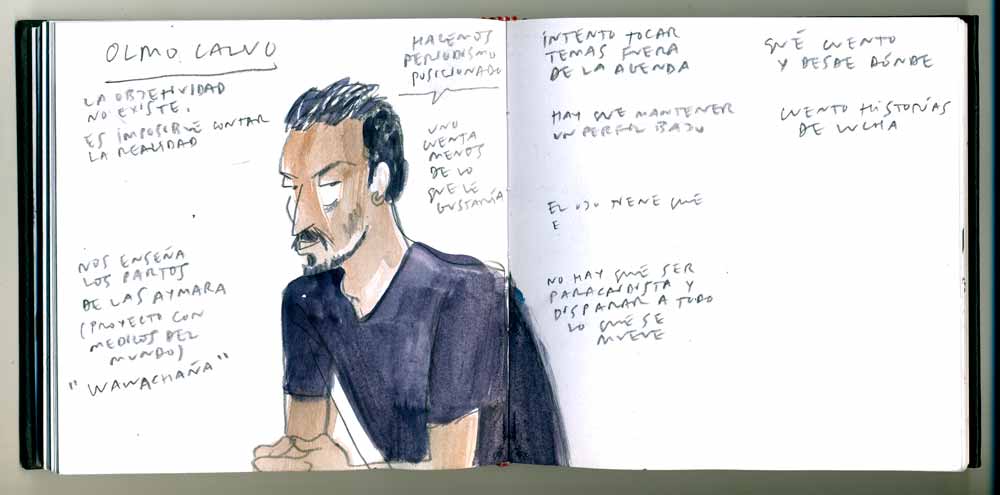 OLMO CALVO
LA OBJETIVIDAD
NO EXISTE.
ES IMPOSIBLE CONTAR
LA REALIDAD
NOS ENSEÑA
LOS PARTOS
DE LAS AYMARA
(PROYECTO CON
MEDICOS DEL
MUNDO)
"WAWACHAÑA"
HACEMOS
PERIODISMO
POSICIONADO
UNO
CUENTA
MENOS
DE LO
QUE LE
GUSTARÍA
INTENTO TOCAR
TEMAS FUERA
DE LA AGENDA
HAY QUE MANTENER
UN PERFIL BAJO
EL OJO TIENE QUE
E
NO HAY QUE SER
PARACAIDISTA Y
DISPARAR A TODO
LO QUE SE
MUEVE
QUÉ CUENTO
Y DESDE DÓNDE
CUENTO HISTORIAS
DE LUCHA